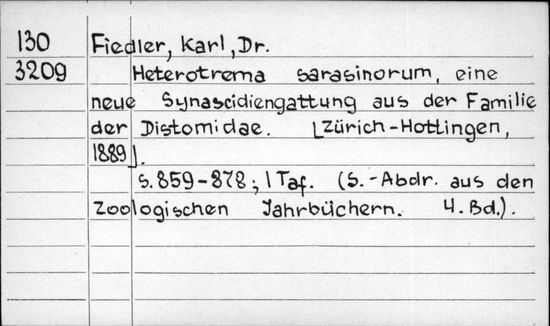 130 Fiedler, Karl, Dr.
3209 Heterotrema sarasinorum, eine
neue Synascidiengattung aus der Familie
der Distomidae. [Zürich-Hottingen,
1889].
S. 859-878; 1 Taf. (S.-Abdr. aus den
Zoologischen Jahrbüchern. 4. Bd.).